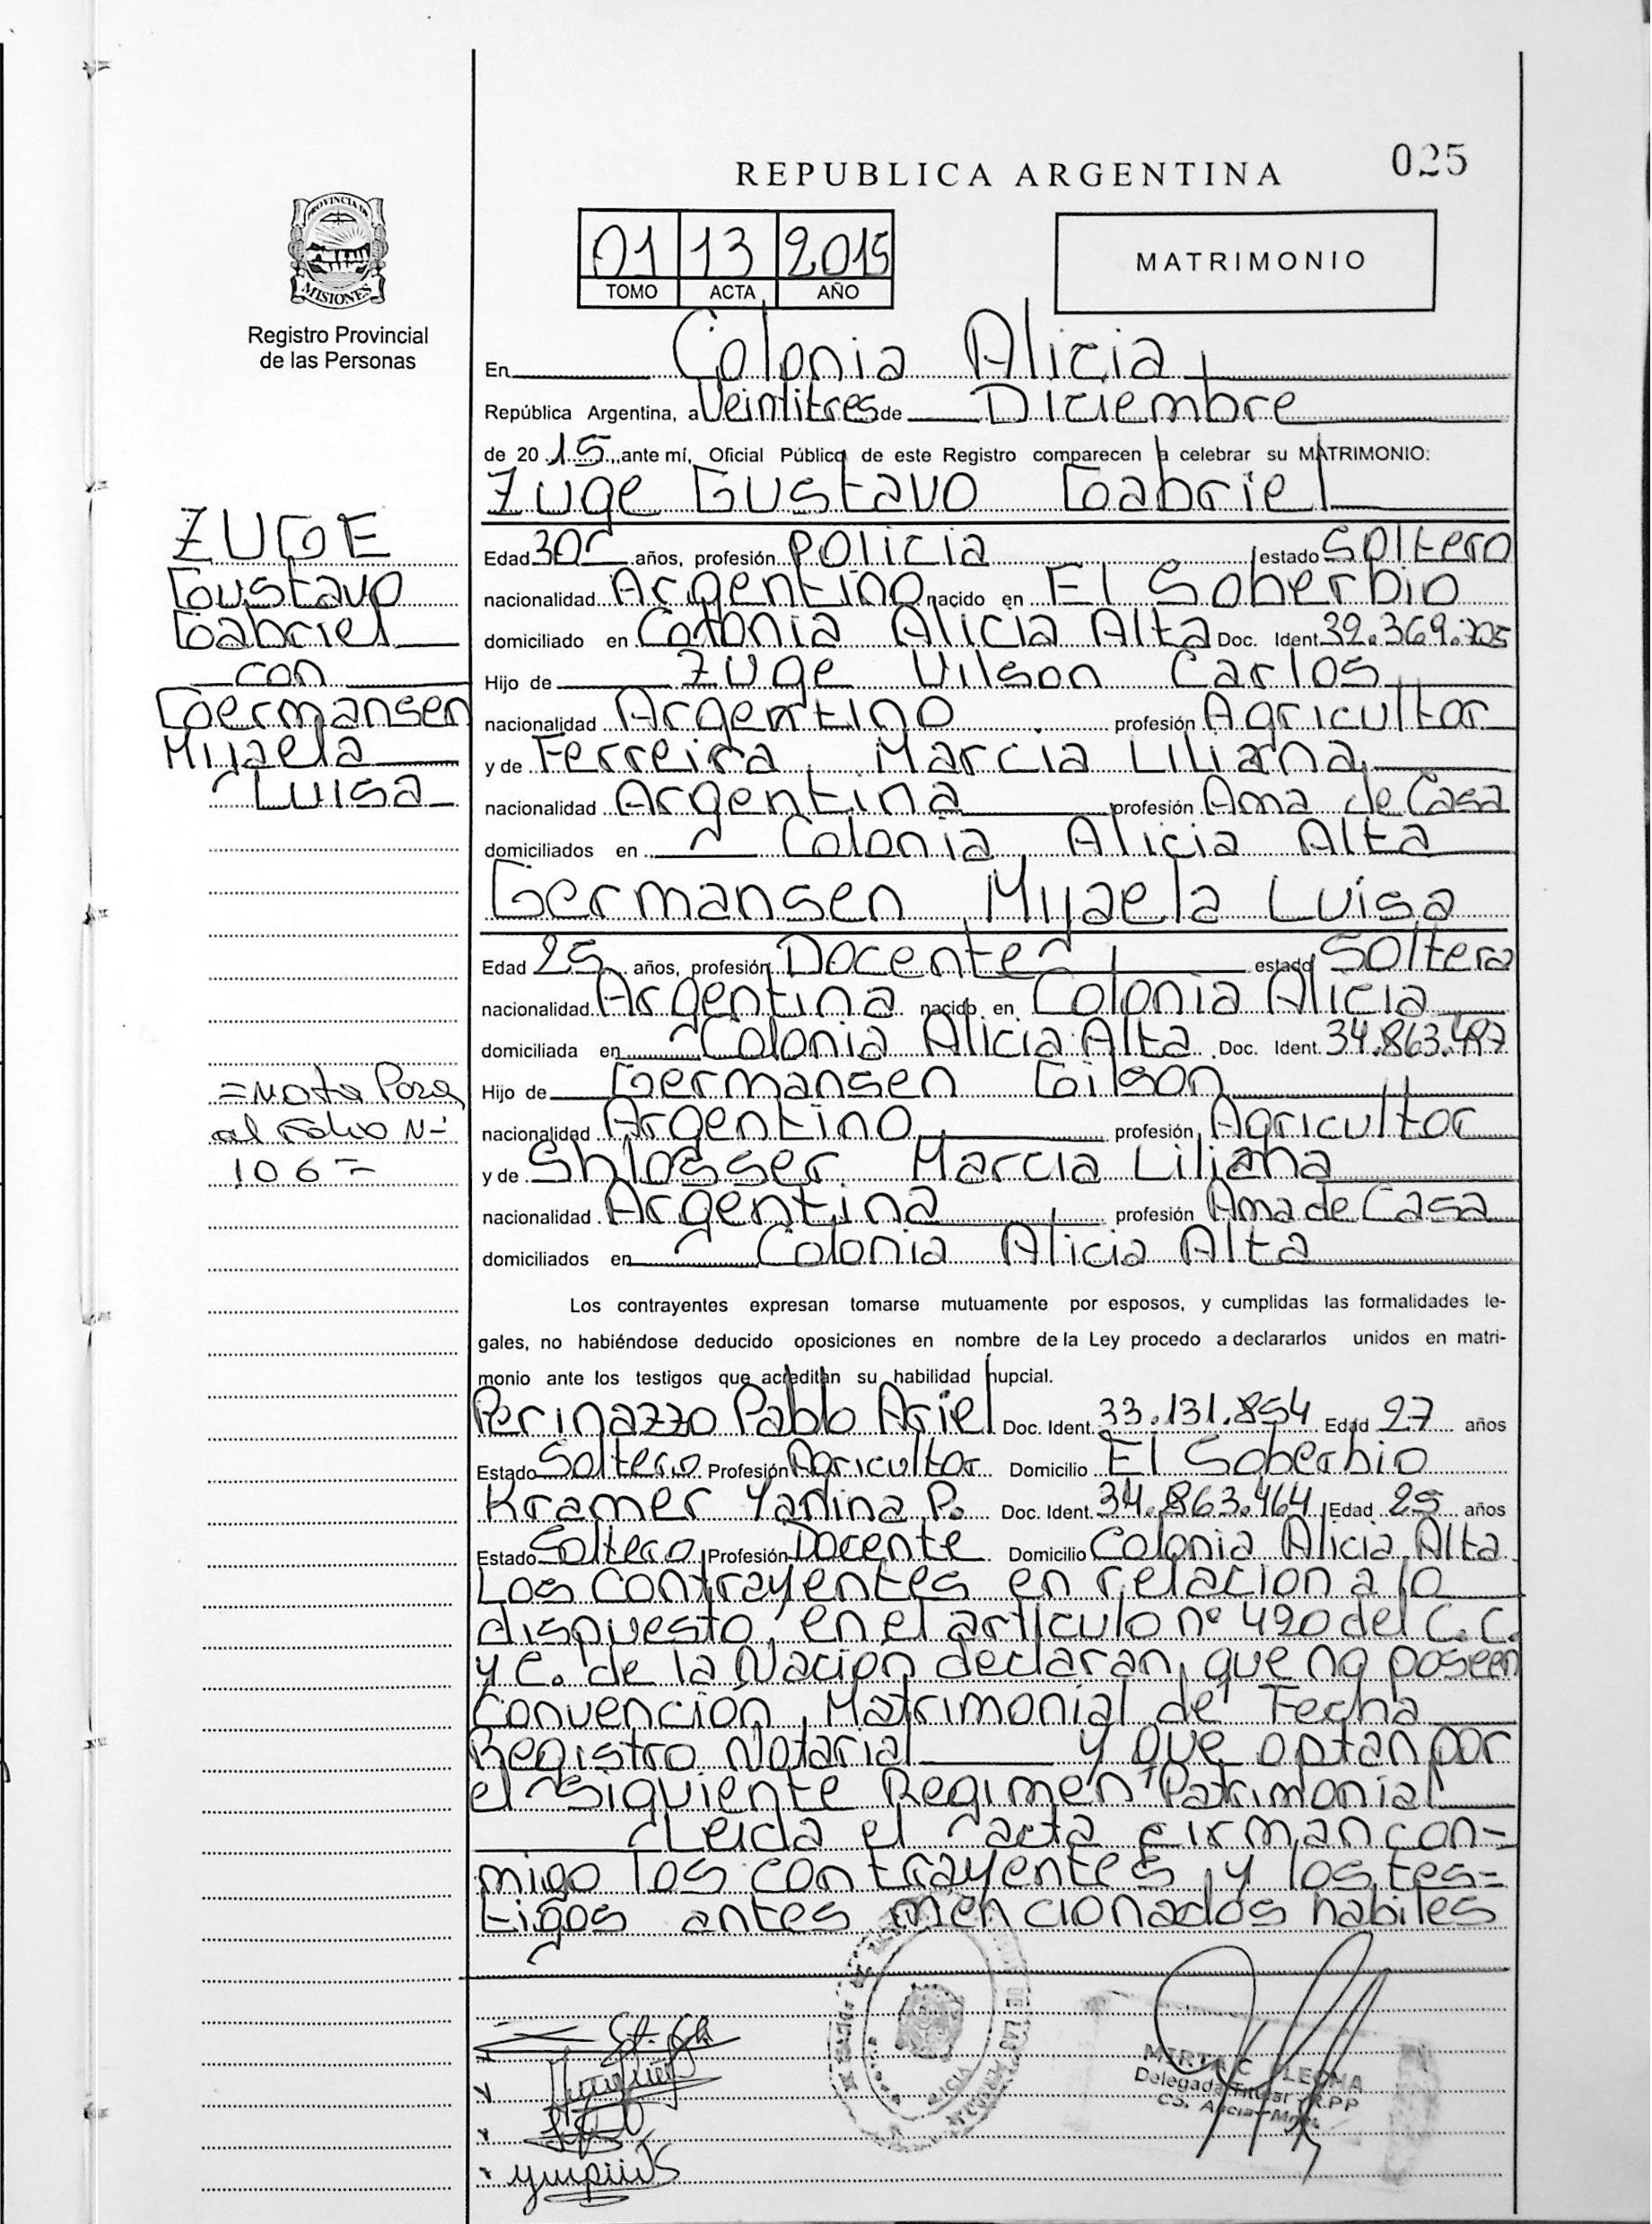 025
REPUBLICA ARGENTINA
01 13 2015
TOMO ACTA AÑO
MATRIMONIO
PROVINCIA DE
MISIONES
Registro Provincial
de las Personas
ZUGE
Gustavo
Gabriel
con
Germansen
Myaela
Luisa
=Nota Pasa
al Folio N=
106=
En Colonia Alicia
República Argentina, a Veintitres de Diciembre
de 2015, ante mí, Oficial Público de este Registro comparecen a celebrar su MATRIMONIO:
Zuge Gustavo Gabriel
Edad 30 años, profesión Policia estado Soltero
nacionalidad Argentino nacido en El Soberbio
domiciliado en Colonia Alicia Alta Doc. Ident. 32.369.705
Hijo de Zuge Vilson Carlos
nacionalidad Argentino profesión Agricultor
y de Ferreira Marcia Liliana
nacionalidad Argentina profesión Ama de Casa
domiciliados en Colonia Alicia Alta
Germansen Myaela Luisa
Edad 25 años, profesión Docente estado Soltera
nacionalidad Argentina nacido en Colonia Alicia
domiciliada en Colonia Alicia Alta Doc. Ident. 34.863.497
Hijo de Germansen Gilson
nacionalidad Argentino profesión Agricultor
y de Shlosser Marcia Liliana
nacionalidad Argentina profesión Ama de Casa
domiciliados en Colonia Alicia Alta
Los contrayentes expresan tomarse mutuamente por esposos, y cumplidas las formalidades le-
gales, no habiéndose deducido oposiciones en nombre de la Ley procedo a declararlos unidos en matri-
monio ante los testigos que acreditan su habilidad nupcial.
Perinazzo Pablo Ariel Doc. Ident. 33.131.854 Edad 27 años
Estado Soltero Profesión Agricultor Domicilio El Soberbio
Kramer Yanina P. Doc. Ident. 34.863.464 Edad 25 años
Estado Soltero Profesión Docente Domicilio Colonia Alicia Alta
Los contrayentes en relacion a lo
dispuesto en el articulo nº 420 del C.C.
y C. de la Nacion declaran que no poseen
Convencion Matrimonial de Fecha
Registro Notarial y que optan por
el Siguiente Regimen Patrimonial
Leida el acta firman con=
migo los contrayentes y los tes=
tigos antes mencionados habiles
MIRTA C
Delegada Titular R.P.P